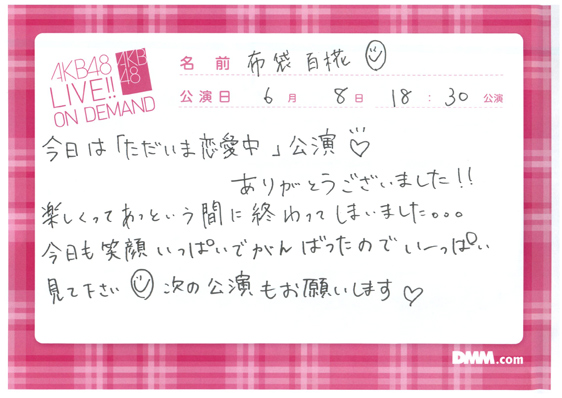 AKB48
LIVE!!
ON DEMAND
AKB
48
名前 布袋百椛
公演日 6月 8日 18:30 公演
今日は「ただいま恋愛中」公演♡
ありがとうございました!!
楽しくってあっという間に終わってしまいました。。。
今日も笑顔いっぱいでがんばったのでいーっぱい
見て下さい 次の公演もお願いします♡
DMM.com